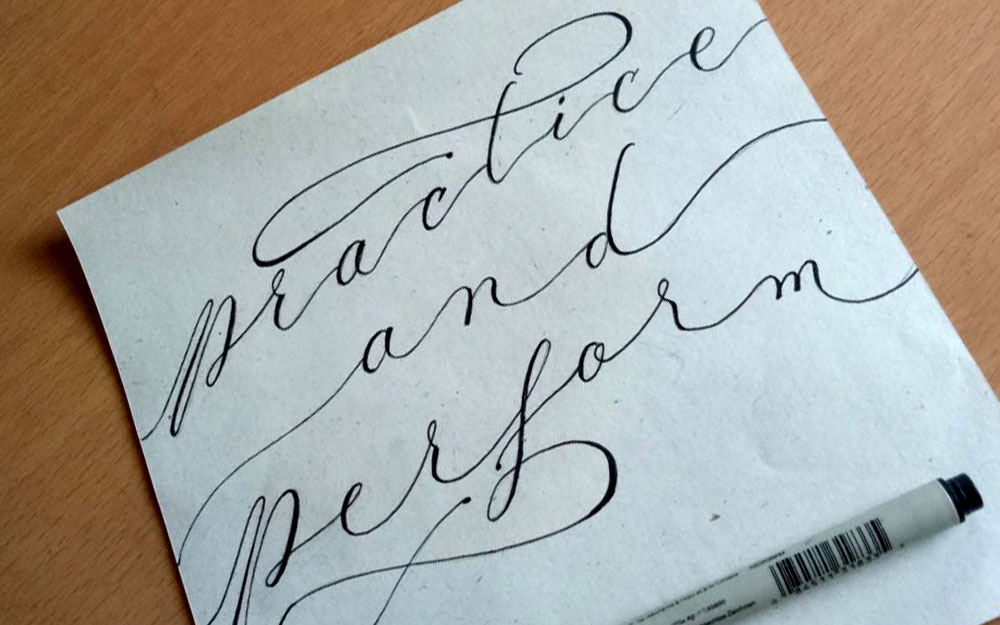 practice
and
perform